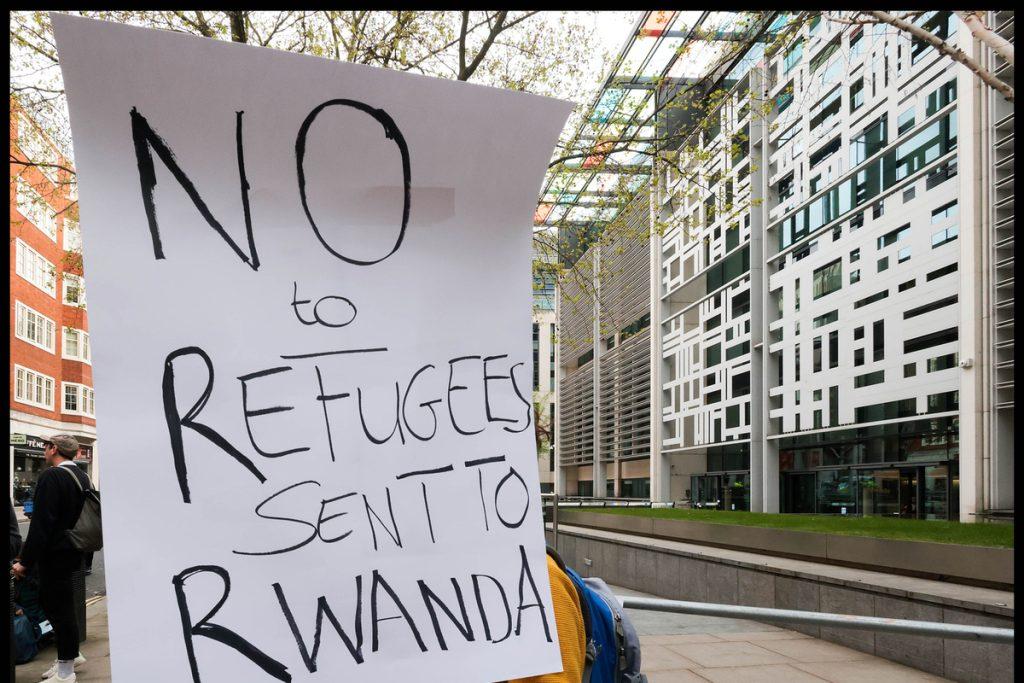 NO
to
REFUGEES
SENT TO
RWANDA